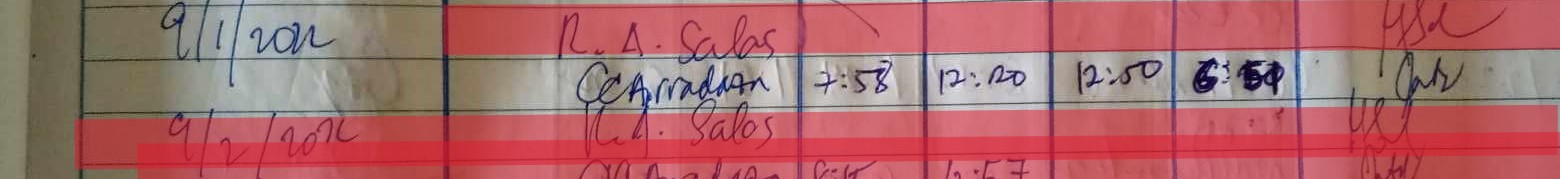 9/1/2022 R. A. Salas
CCArradaza 7:58 12:20 12:50 6:50
9/2/2022 R.A. Salas